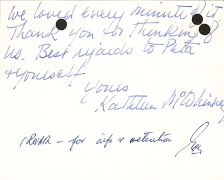 We loved every minute of it
Thank you for thinking of
us. Best regards to Peta
& yourself
Yours
Kathleen
- for info & retention